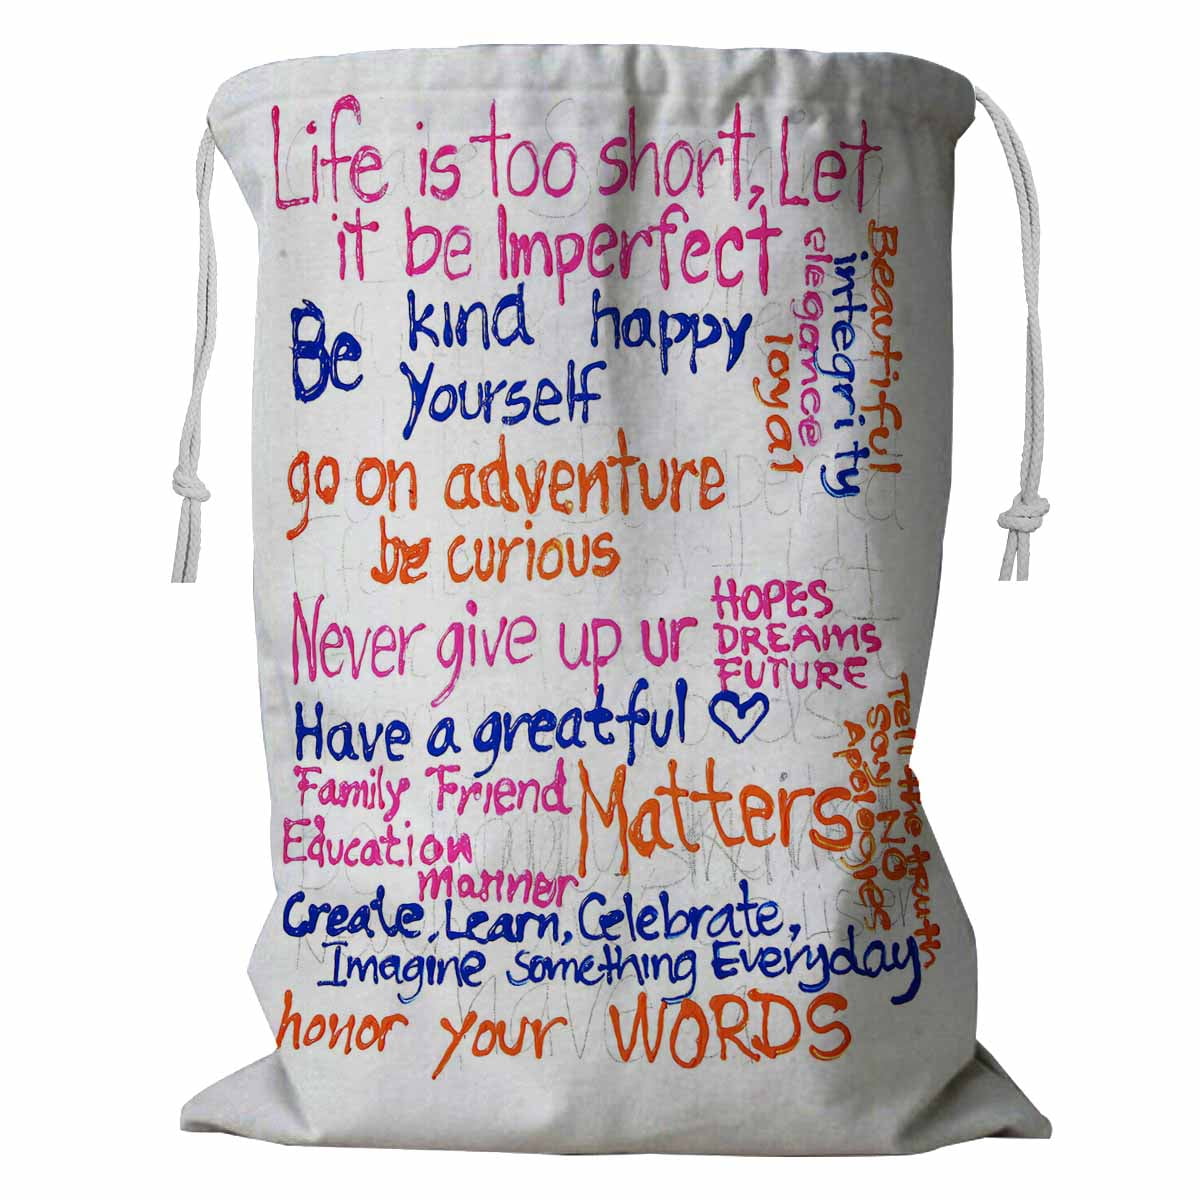 Life is too short, Let
it be Imperfect
Beautiful
integrity
elegance
loyal
Be kind happy
Yourself
go on adventure
be curious
Never give up ur HOPES
DREAMS
FUTURE
Have a greatful
Family Friend
Education
manner
Matters
Tell the truth
Say NO
Apologies
Create, Learn, Celebrate,
Imagine Something Everyday
honor your WORDS